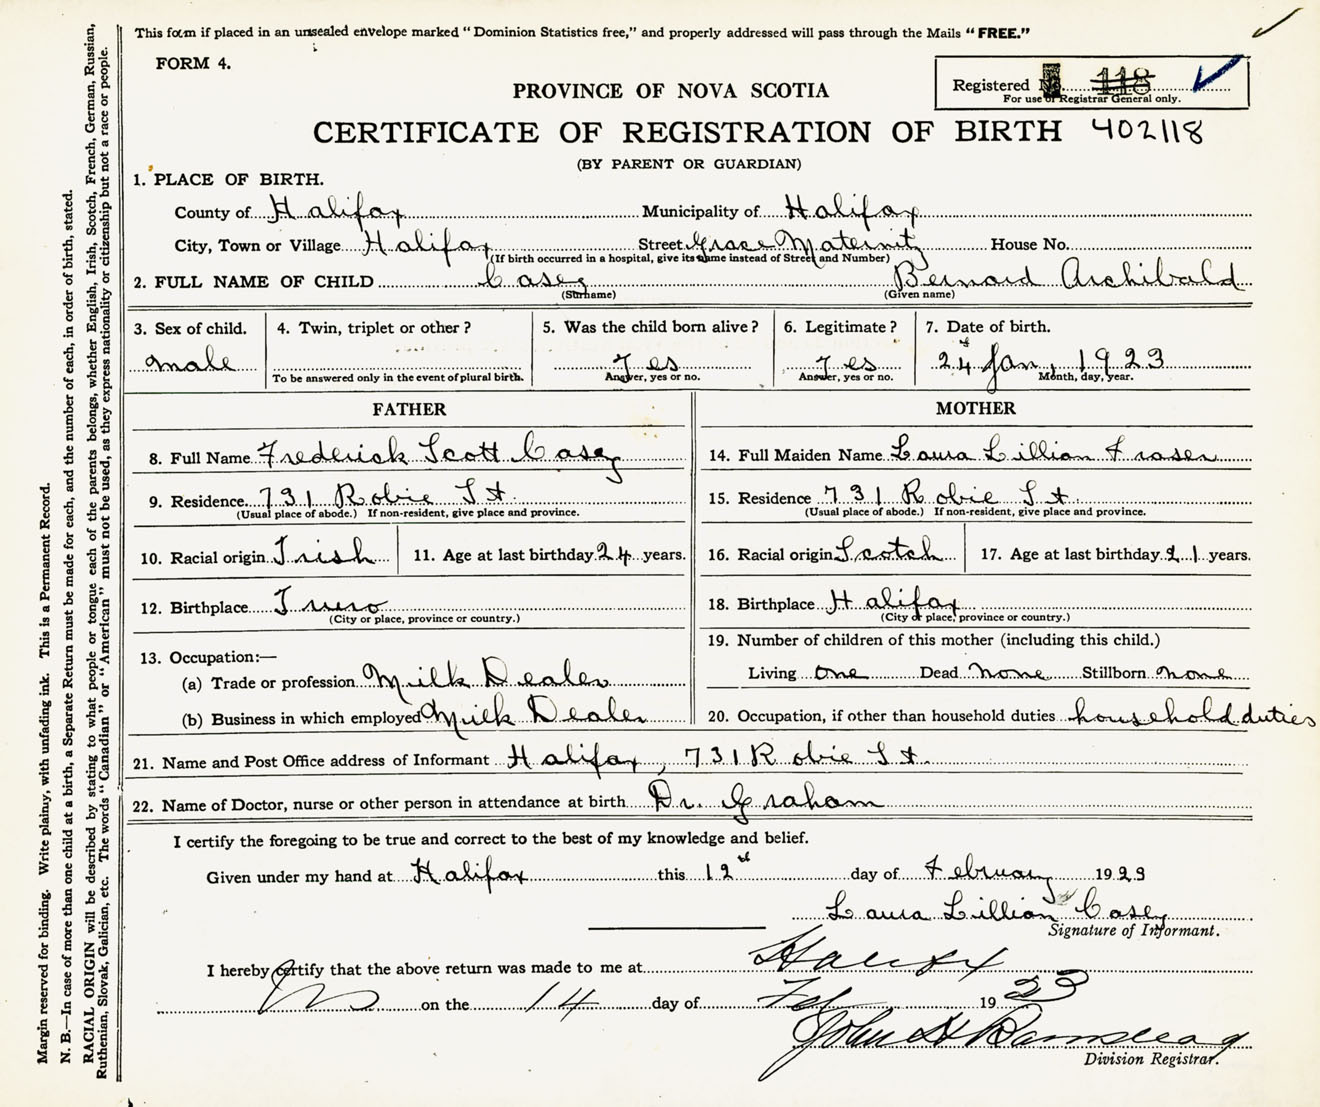 This form if placed in an unsealed envelope marked "Dominion Statistics free," and properly addressed will pass through the Mails "FREE."
FORM 4.
Registered No. 118
For use of Registrar General only.
PROVINCE OF NOVA SCOTIA
CERTIFICATE OF REGISTRATION OF BIRTH 402118
(BY PARENT OR GUARDIAN)
1. PLACE OF BIRTH.
County of Halifax Municipality of Halifax
City, Town or Village Halifax Street Grace Maternity House No.
(If birth occurred in a hospital, give its name instead of Street and Number)
2. FULL NAME OF CHILD Casey Bernard Archibald
(Surname) (Given name)
3. Sex of child. 4. Twin, triplet or other? 5. Was the child born alive? 6. Legitimate? 7. Date of birth.
male Yes Yes 24 Jan, 1923
To be answered only in the event of plural birth. Answer, yes or no. Answer, yes or no. Month, day, year.
FATHER MOTHER
8. Full Name Frederick Scott Casey 14. Full Maiden Name Laura Lillian Fraser
9. Residence 731 Robie St. 15. Residence 731 Robie St
(Usual place of abode.) If non-resident, give place and province. (Usual place of abode.) If non-resident, give place and province.
10. Racial origin Irish 11. Age at last birthday 24 years. 16. Racial origin Scotch 17. Age at last birthday 21 years.
12. Birthplace Truro 18. Birthplace Halifax
(City or place, province or country.) (City or place, province or country.)
13. Occupation:— 19. Number of children of this mother (including this child.)
(a) Trade or profession Milk Dealer Living One Dead None Stillborn None
(b) Business in which employed Milk Dealer 20. Occupation, if other than household duties household duties
21. Name and Post Office address of Informant Halifax, 731 Robie St.
22. Name of Doctor, nurse or other person in attendance at birth Dr. Graham
I certify the foregoing to be true and correct to the best of my knowledge and belief.
Given under my hand at Halifax this 12 day of February 1923
Laura Lillian Casey
Signature of Informant.
I hereby certify that the above return was made to me at Halifax
on the 14 day of Feb 1923
John A Ramseay
Division Registrar.
Margin reserved for binding. Write plainly, with unfading ink. This is a Permanent Record.
N. B.—In case of more than one child at a birth, a Separate Return must be made for each, and the number of each, in order of birth, stated.
RACIAL ORIGIN will be described by stating to what people or tongue each of the parents belongs, whether English, Irish, Scotch, French, German, Russian,
Ruthenian, Slovak, Galician, etc. The words "Canadian" or "American" must not be used, as they express nationality or citizenship but not a race or people.